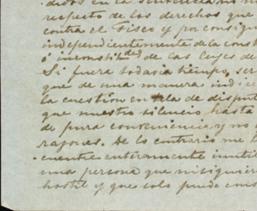 didos en la sentencia no
respecto de los derechos que
contra el Fisco y por consigu
independientemente de la const
ó inconstitudes de las leyes de
Si fuera todavia tiempo, ser
que de una manera indi
la cuestion en tela de disput
que nuestro silencio, hasta
de pura conveniencia y no
razones. De lo contrario me
cuentre enteramente inutil
una persona que ni siquiera
hostil y que solo puede